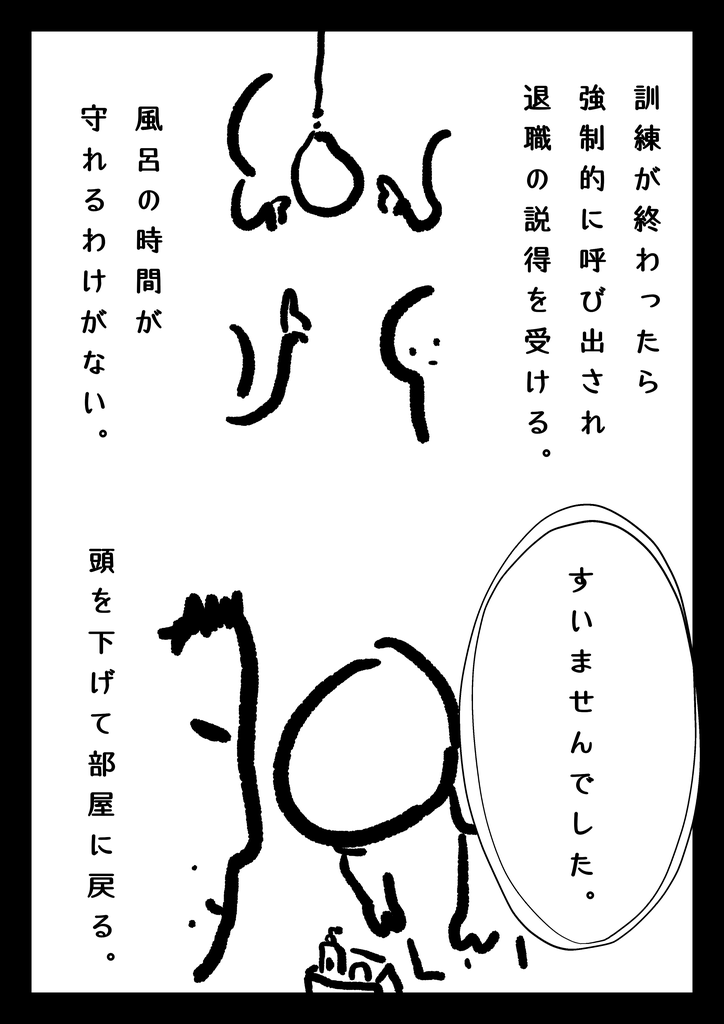 訓練が終わったら
強制的に呼び出され
退職の説得を受ける。
風呂の時間が
守れるわけがない。
すいませんでした。
頭を下げて部屋に戻る。